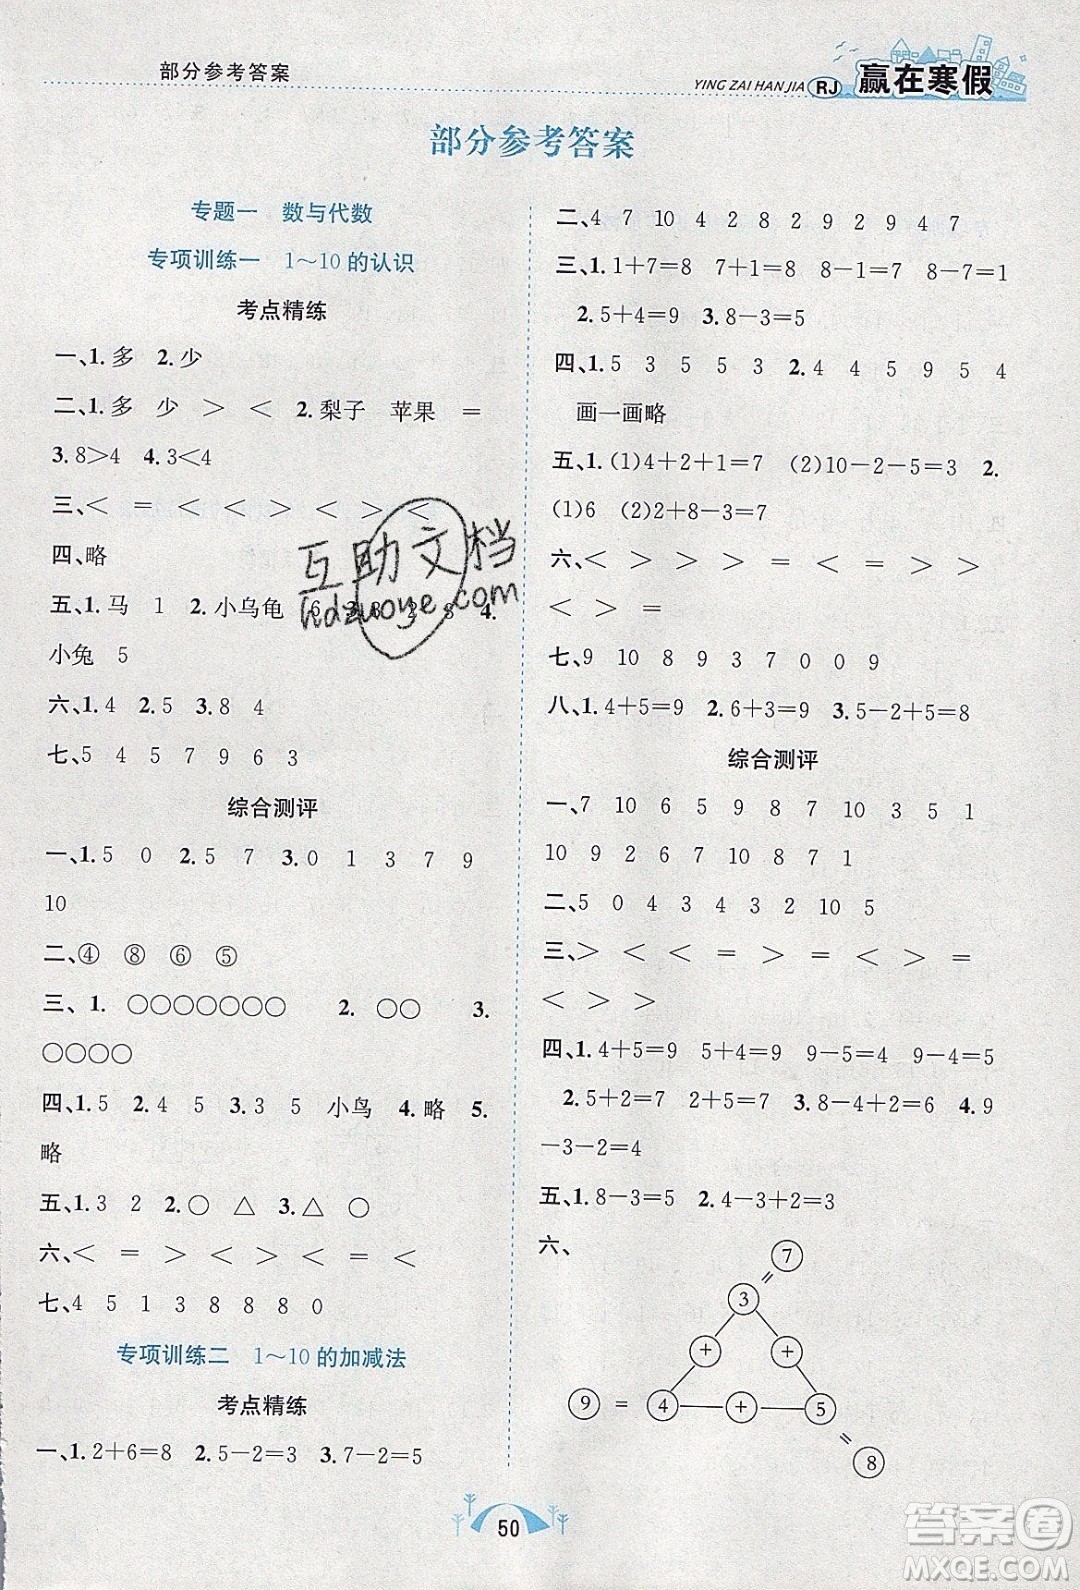 部分参考答案
YING ZAI HAN JIA RJ 赢在寒假
部分参考答案
专题一 数与代数
专项训练一 1～10的认识
考点精练
一、1.多 2.少
二、1.多 少 ＞ ＜ 2.梨子 苹果 ＝
3.8＞4 4.3＜4
三、＜ ＝ ＜ ＜ ＜ ＞ ＜ ＞ ＜
四、略
五、1.马 1 2.小乌龟 6 3.8 2 8 4.
小兔 5
六、1.4 2.5 3.8 4
七、5 4 5 7 9 6 3
综合测评
一、1.5 0 2.5 7 3.0 1 3 7 9
10
二、④ ⑧ ⑥ ⑤
三、1.○○○○○○○ 2.○○ 3.
○○○○
四、1.5 2.4 5 3.3 5 小鸟 4.略 5.
略
五、1.3 2 2.○ △ 3.△ ○ △
六、＜ ＝ ＞ ＜ ＞ ＜ ＝ ＜
七、4 5 1 3 8 8 8 0
专项训练二 1～10的加减法
考点精练
一、1.2＋6＝8 2.5－2＝3 3.7－2＝5
二、4 7 10 4 2 8 2 9 2 9 4 7
三、1.1＋7＝8 7＋1＝8 8－1＝7 8－7＝1
2.5＋4＝9 3.8－3＝5
四、1.5 3 5 5 3 2.4 4 5 9 5 4
画一画略
五、1.(1)4＋2＋1＝7 (2)10－2－5＝3 2.
(1)6 (2)2＋8－3＝7
六、＜ ＞ ＞ ＞ ＝ ＜ ＝ ＞ ＞
＜ ＞ ＝
七、9 10 8 9 3 7 0 0 9
八、1.4＋5＝9 2.6＋3＝9 3.5－2＋5＝8
综合测评
一、7 10 6 5 9 8 7 10 3 5 1
10 9 2 6 7 10 8 7 1
二、5 0 4 3 4 3 2 10 5
三、＞ ＜ ＜ ＝ ＞ ＜ ＞ ＝
＜ ＞ ＞
四、1.4＋5＝9 5＋4＝9 9－5＝4 9－4＝5
2.5＋2＝7 2＋5＝7 3.8－4＋2＝6 4.9
－3－2＝4
五、1.8－3＝5 2.4－3＋2＝3
六、
7
＝
3
＋ ＋
9 ＝ 4 ＋ 5
＝
8
50
互助文档
hdzuoye.com
答案圈
MXQE.COM